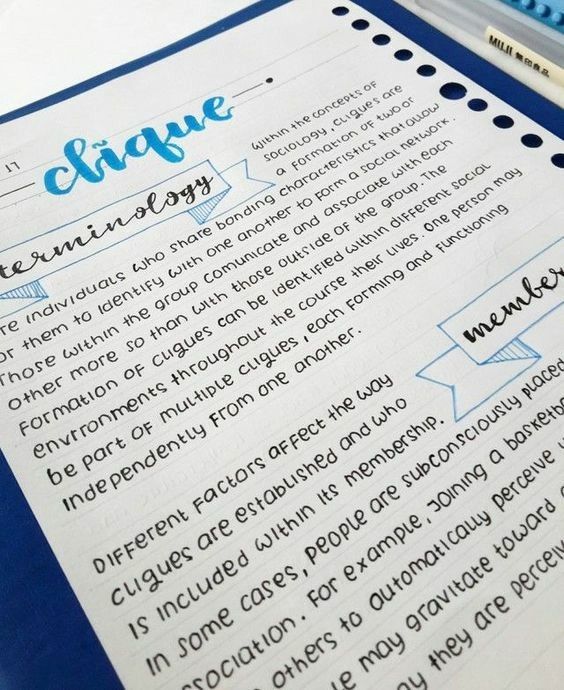 MUJI 無印良品
17
clique
terminology
Within the concepts of
sociology, cliques are
a formation of two or
re individuals who share bonding characteristics that allow
or them to identify with one another to form a social network.
Those within the group comunicate and associate with each
other more so than with those outside of the group. The
formation of cliques can be identified within different social
environments throughout the course their lives. One person may
be part of multiple cliques, each forming and functioning
independently from one another.
member
Different factors affect the way
cliques are established and who
is included within its membership.
In some cases, people are subconsciously placed
ssociation. For example, joining a basketba
others to automatically perceive
may gravitate toward
they are perceiv